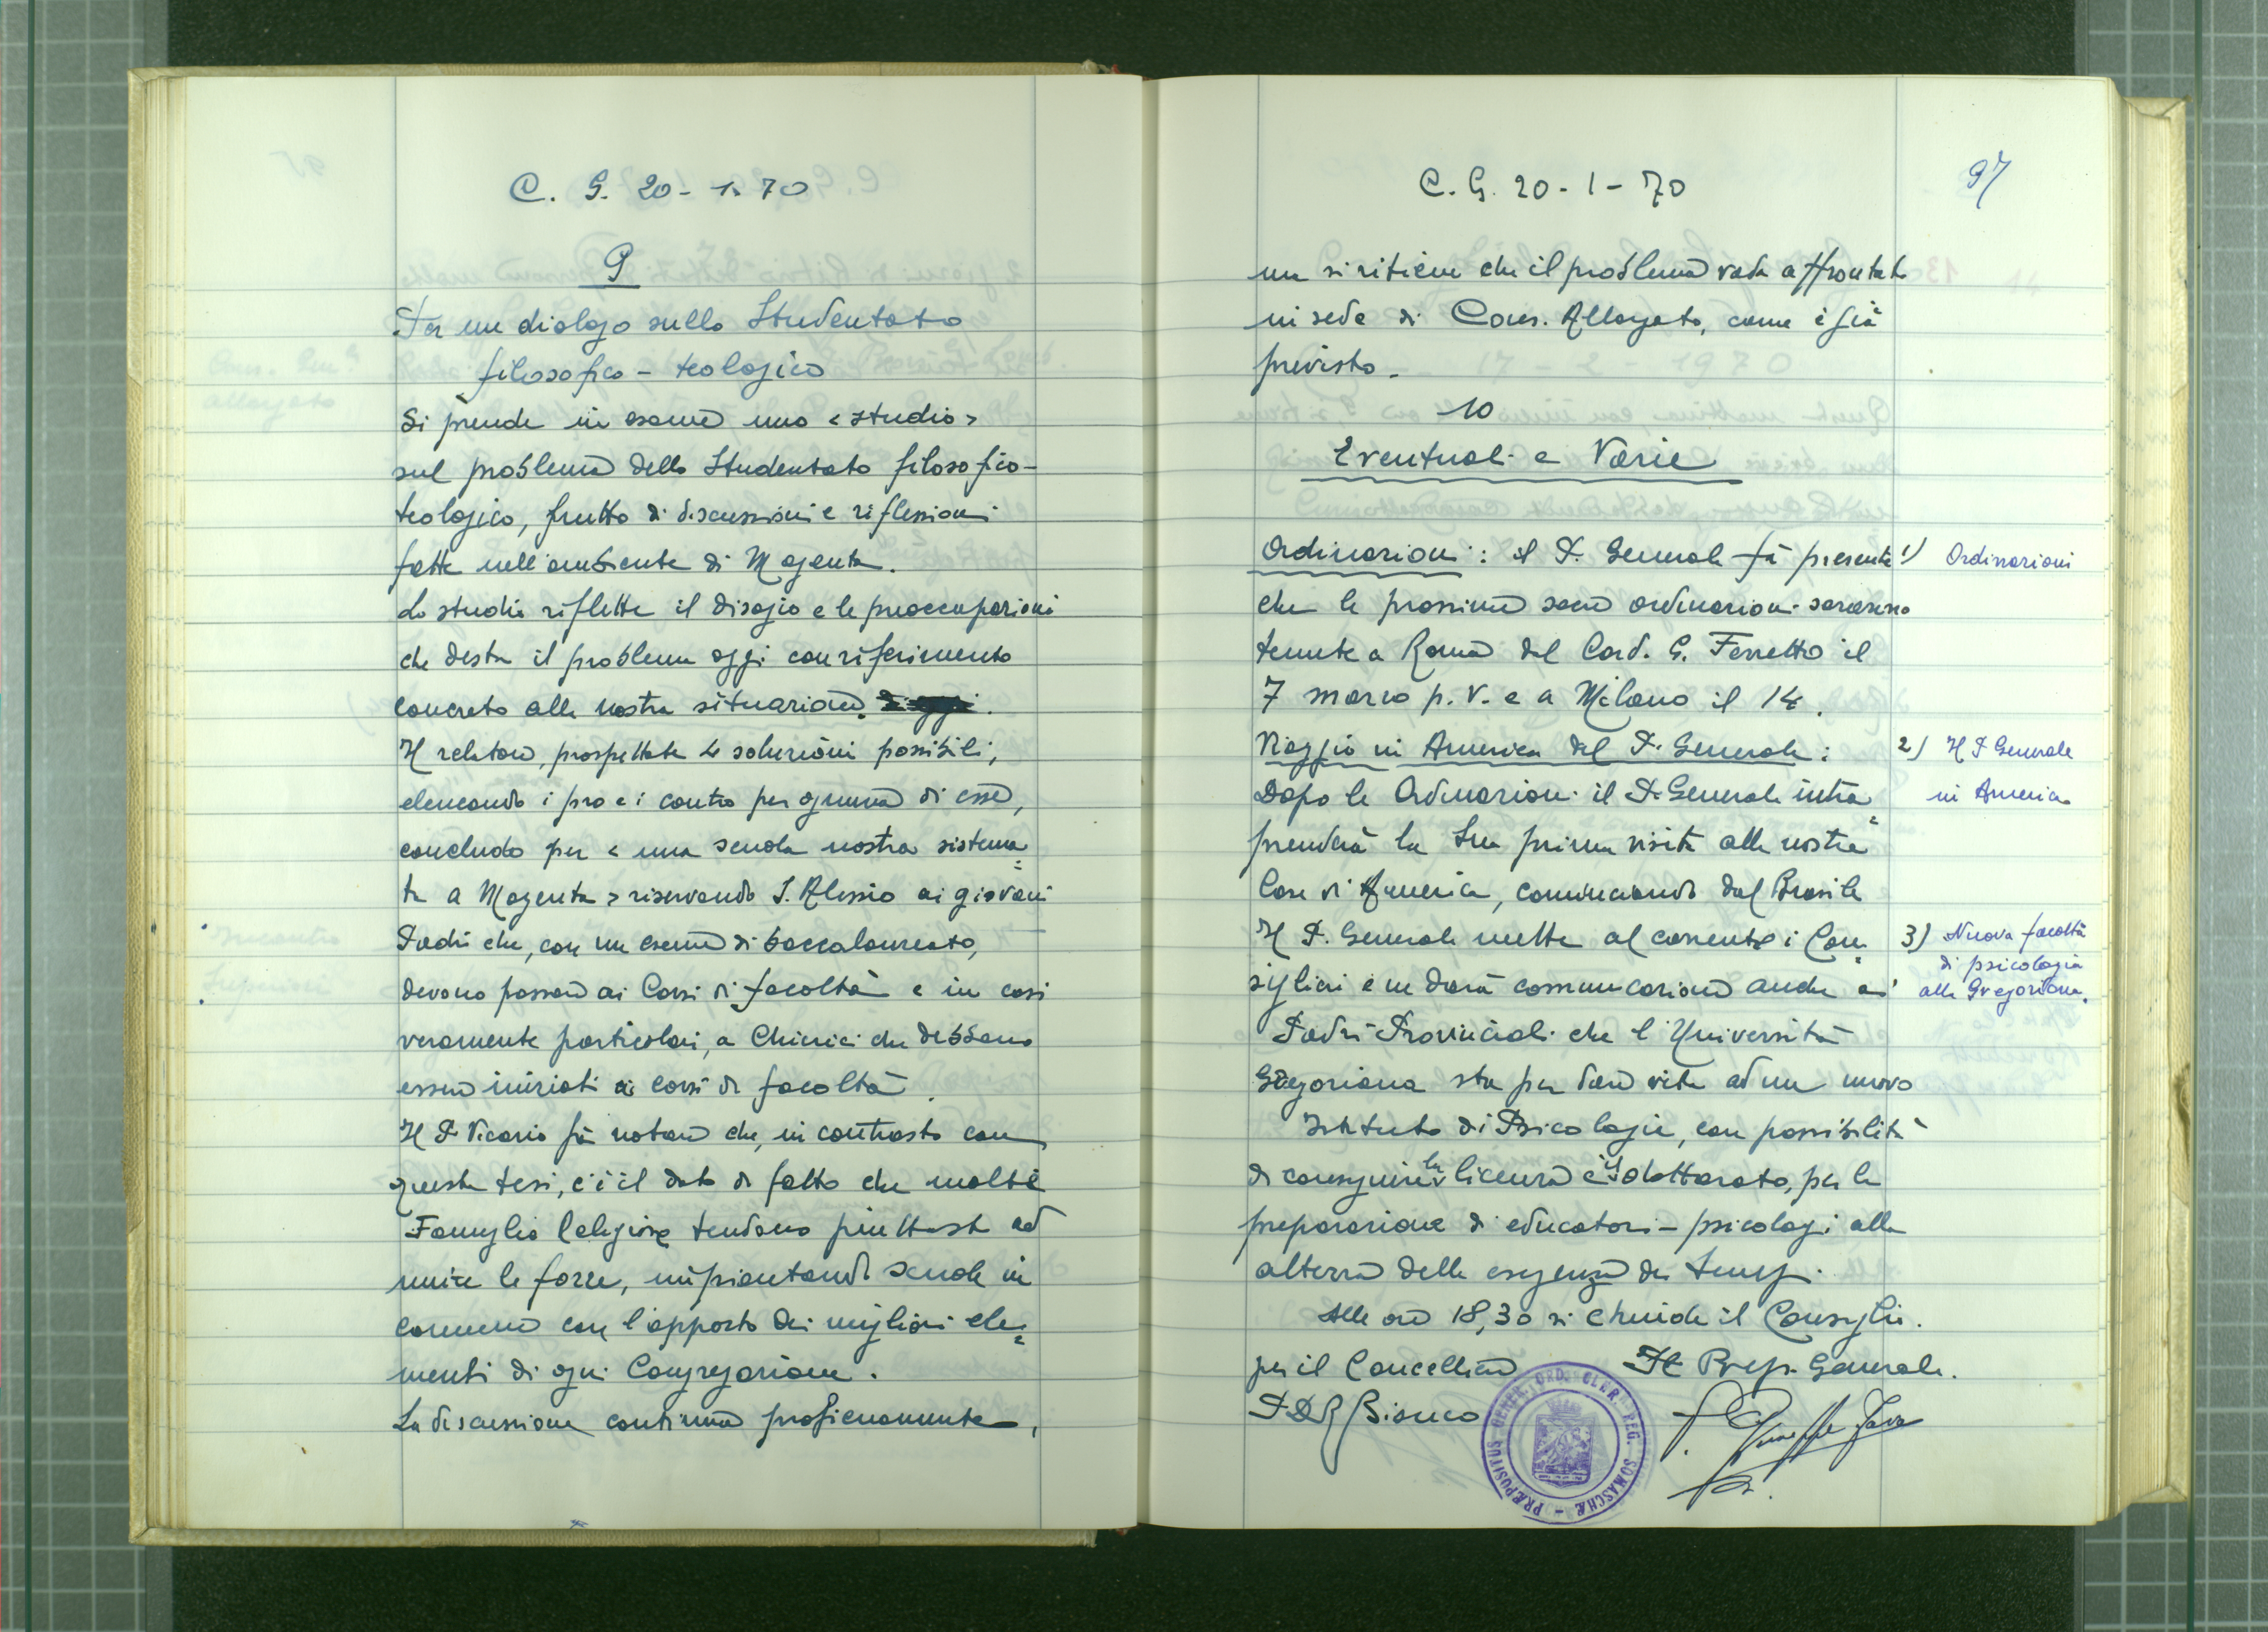 C. G. 20-1-70
9
Per un dialogo sullo Studentato
filosofico - teologico
Si prende in esame uno <studio>
sul problema dello Studentato filosofico-
teologico, frutto di discussioni e riflessioni
fatte nell'ambiente di Magenta.
Lo studio riflette il disagio e le preoccupazioni
che desta il problema oggi con riferimento
concreto alla nostra situazione.
Il relatore, prospettate 4 soluzioni possibili,
elencando i pro e i contro per ognuna di esse,
conclude per < una scuola nostra sistema=
ta a Magenta > riservando S. Alessio ai giovani
Padri che, con un esame di baccalaureato,
devono passare ai Corsi di facoltà e in casi
veramente particolari, a Chierici che debbano
essere iniziati ai corsi di facoltà.
Il P. Vicario fà notare che, in contrasto con
questa tesi, c'è il dato di fatto che molte
Famiglie Religiose tendono piuttosto ad
unire le forze, impiantando scuole in
comune con l'apporto dei migliori ele=
menti di ogni Congregazione.
La discussione continua proficuamente,
C. G. 20-1-70
97
ma si ritiene che il problema vada affrontato
in sede di Cons. Allargato, come è già
previsto.
10
Eventuali e Varie
Ordinazioni: il P. Generale fà presente
1) Ordinazioni
che le prossime sacre ordinazioni saranno
tenute a Roma dal Card. G. Ferretto il
7 marzo p. v. e a Milano il 14.
Viaggio in America del P. Generale:
2) Il P. Generale
in America
Dopo le Ordinazioni il P. Generale intra=
prenderà la Sua prima visita alle nostre
Case di America, cominciando dal Brasile
Il P. Generale mette al corrente i Con=
3) Nuova facoltà
di psicologia
alla Gregoriana.
siglieri e ne darà comunicazione anche ai
Padri Provinciali che l'Università
Gregoriana sta per dare vita ad un nuovo
Istituto di Psicologia, con possibilità
di conseguire la licenza e il dottorato, per la
preparazione di educatori-psicologi alla
altezza delle esigenze dei tempi.
Alle ore 18,30 si chiude il Consiglio.
per il Cancelliere Il Prep. Generale.
P. D. R. Bianco
P. Giuseppe Fava
PRÆPOSITUS GENER. ORD. CLER. REG. SOMASCHÆ